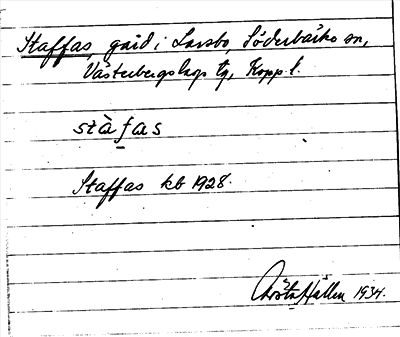 Staffas, gård i Larsbo, Söderbärke sn,
Västerbergslags tg, Kopp. l.
stàfas
Staffas kb 1928.
Hållen 1934.